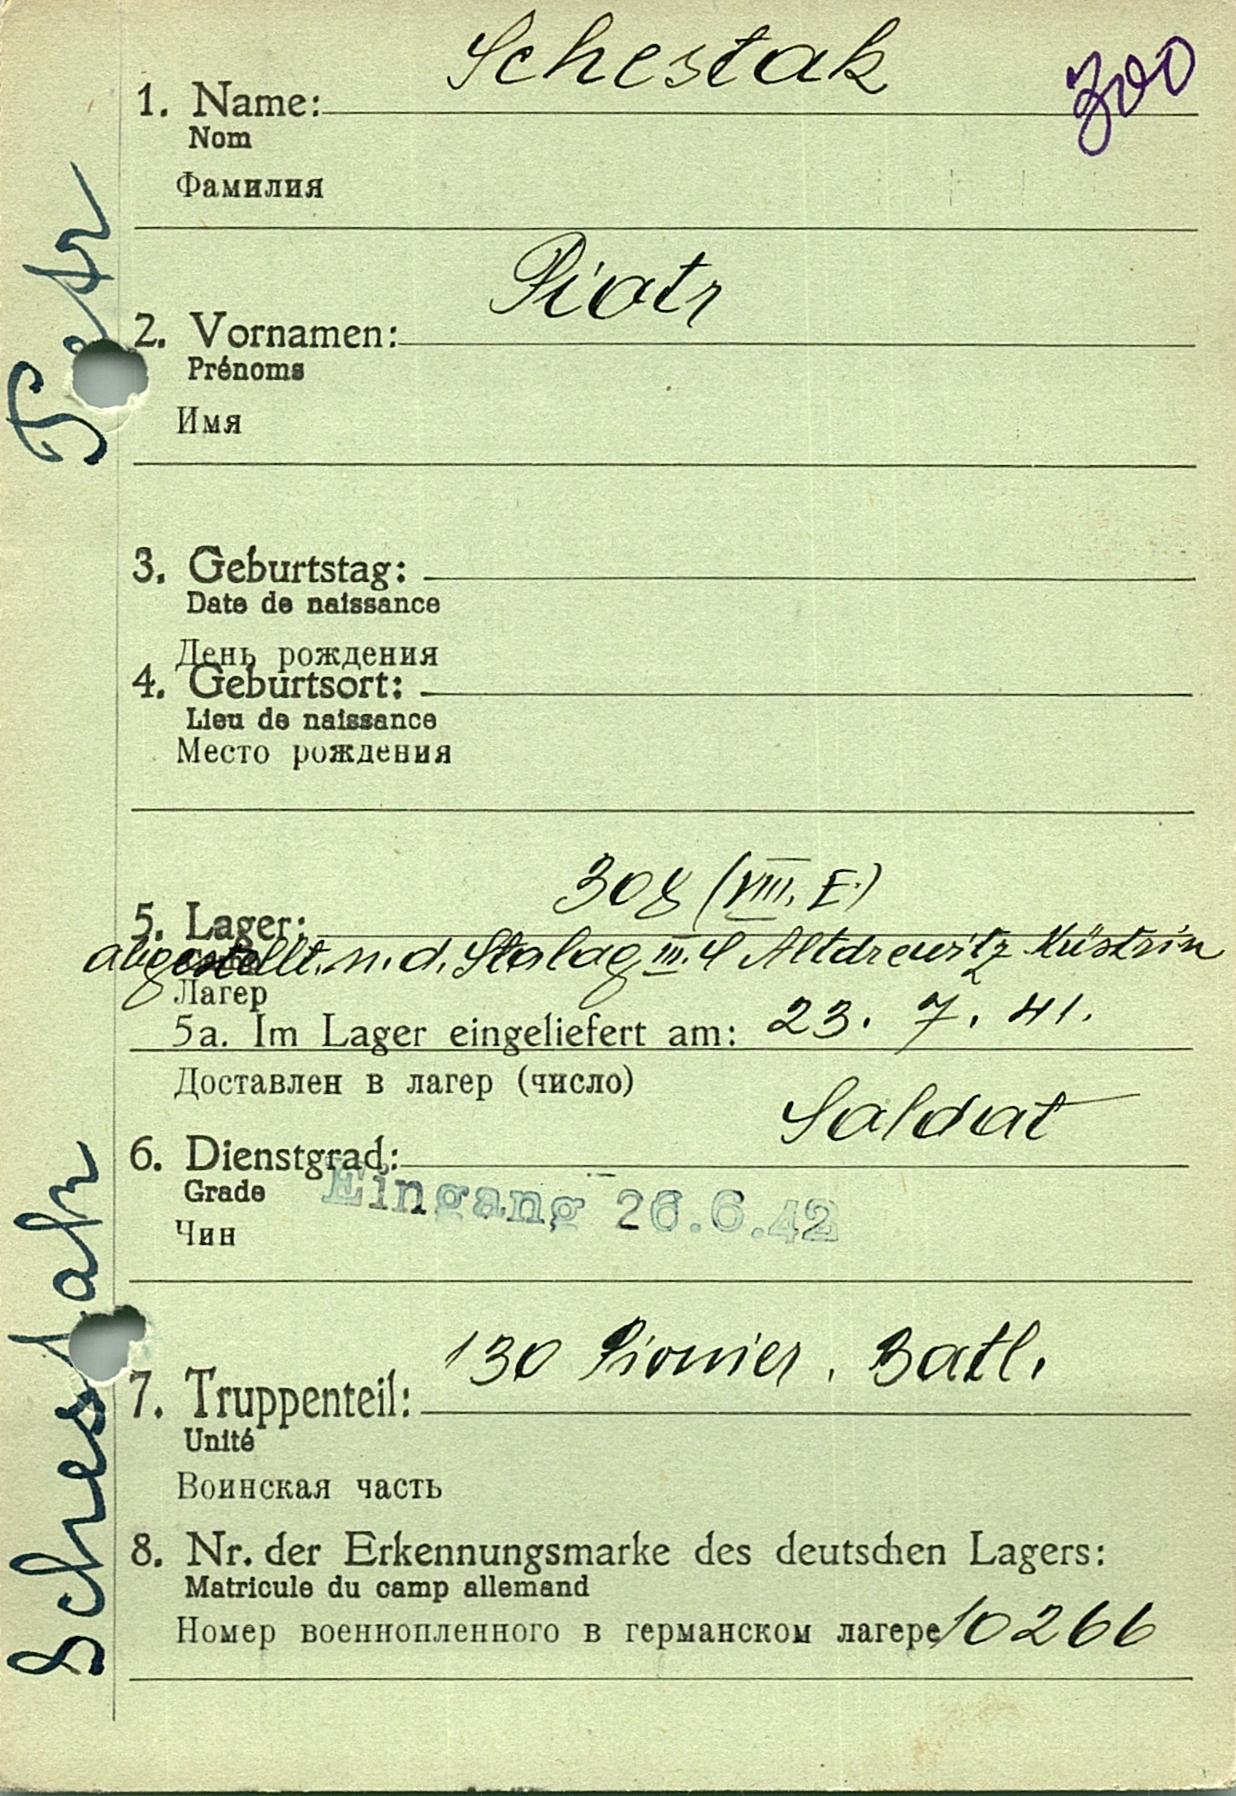 Schestak
300
1. Name:
Nom
Фамилия
Piotr
2. Vornamen:
Prénoms
Имя
3. Geburtstag:
Date de naissance
День рождения
4. Geburtsort:
Lieu de naissance
Место рождения
308 (VIII. E.)
5. Lager:
abgestellt. n. d. Stalag III. C Altdrewitz Küstrin
Лагер
5a. Im Lager eingeliefert am: 23. 7. 41.
Доставлен в лагер (число)
Soldat
6. Dienstgrad:
Grade
Eingang 26.6.42
Чин
130 Pionier. Batl.
7. Truppenteil:
Unité
Воинская часть
8. Nr. der Erkennungsmarke des deutschen Lagers:
Matricule du camp allemand
Номер военнопленного в германском лагере 10266
Schestak Petr